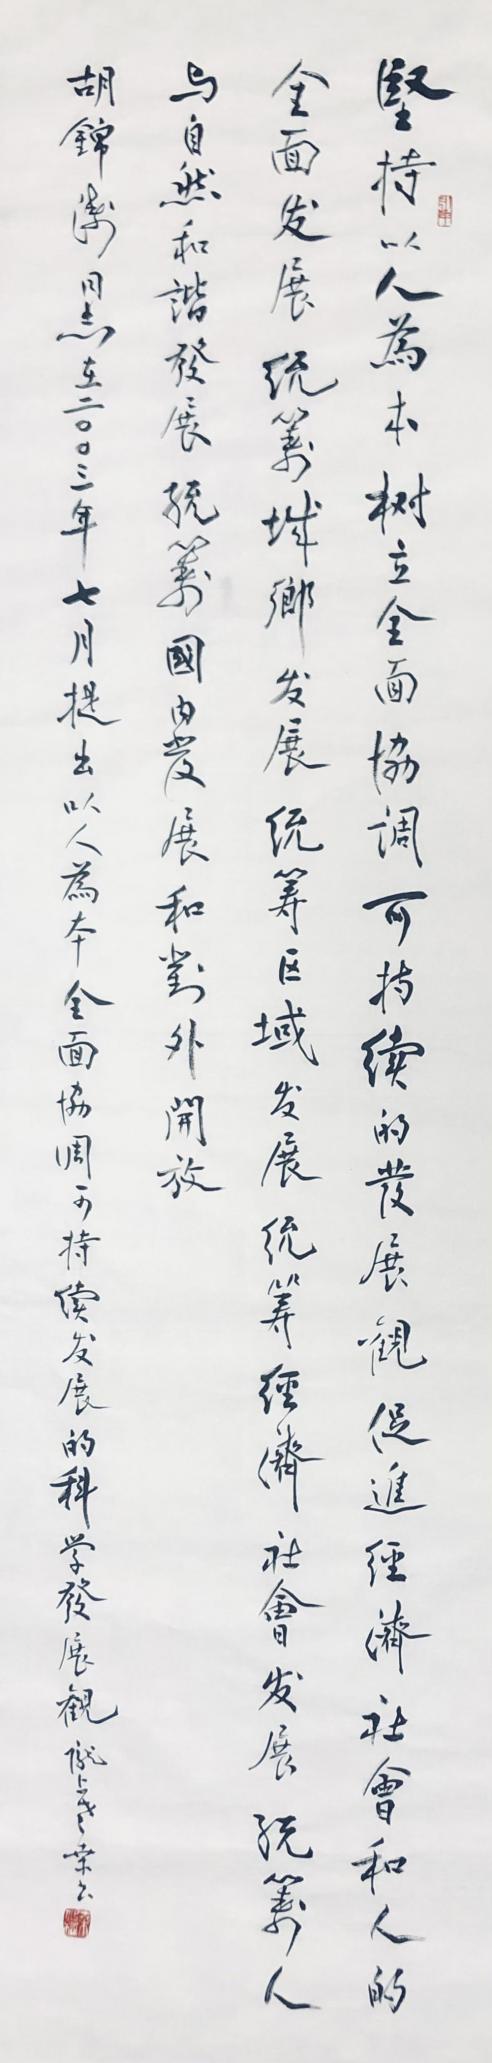 堅持以人為本树立全面協调可持續的發展觀促進經濟社會和人的
全面发展统籌城鄉发展统筹区域发展统筹經濟社會发展统籌人
与自然和諧發展统籌國内發展和對外開放
胡錦濤同志在二〇〇三年七月提出以人為本全面協调可持續发展的科学發展觀